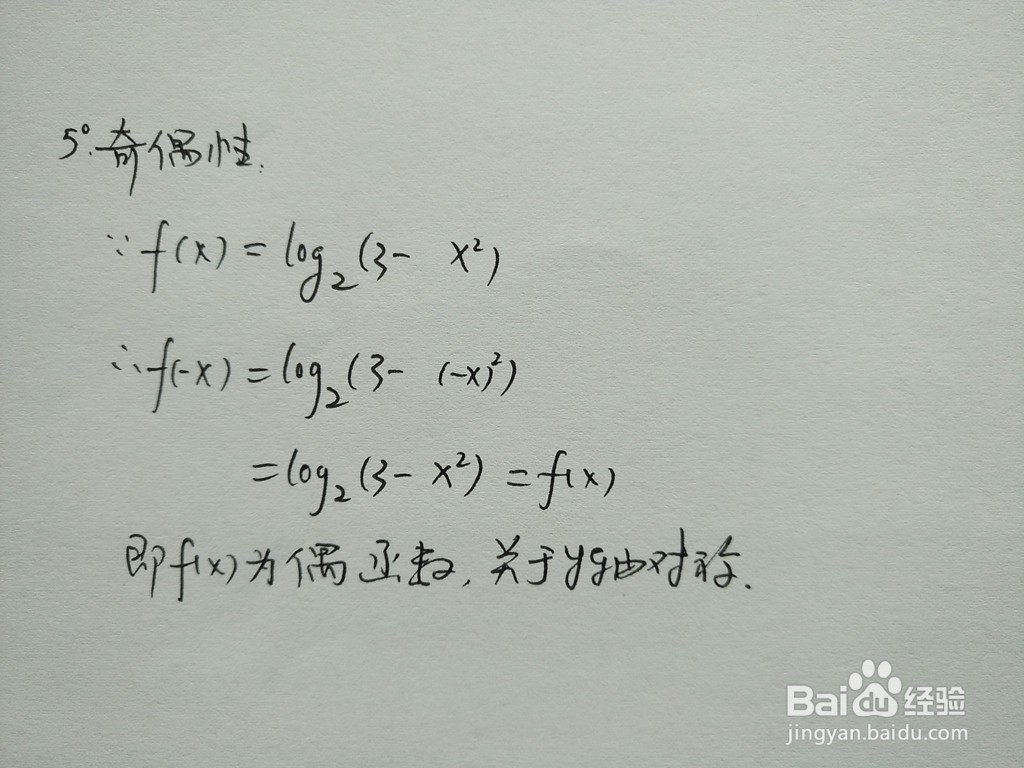 5°.奇偶性.
∵f(x)=log₂(3- x²)
∴f(-x)=log₂(3- (-x)²)
=log₂(3-x²)=f(x)
即f(x)为偶函数,关于y轴对称.
Baidu经验
jingyan.baidu.com